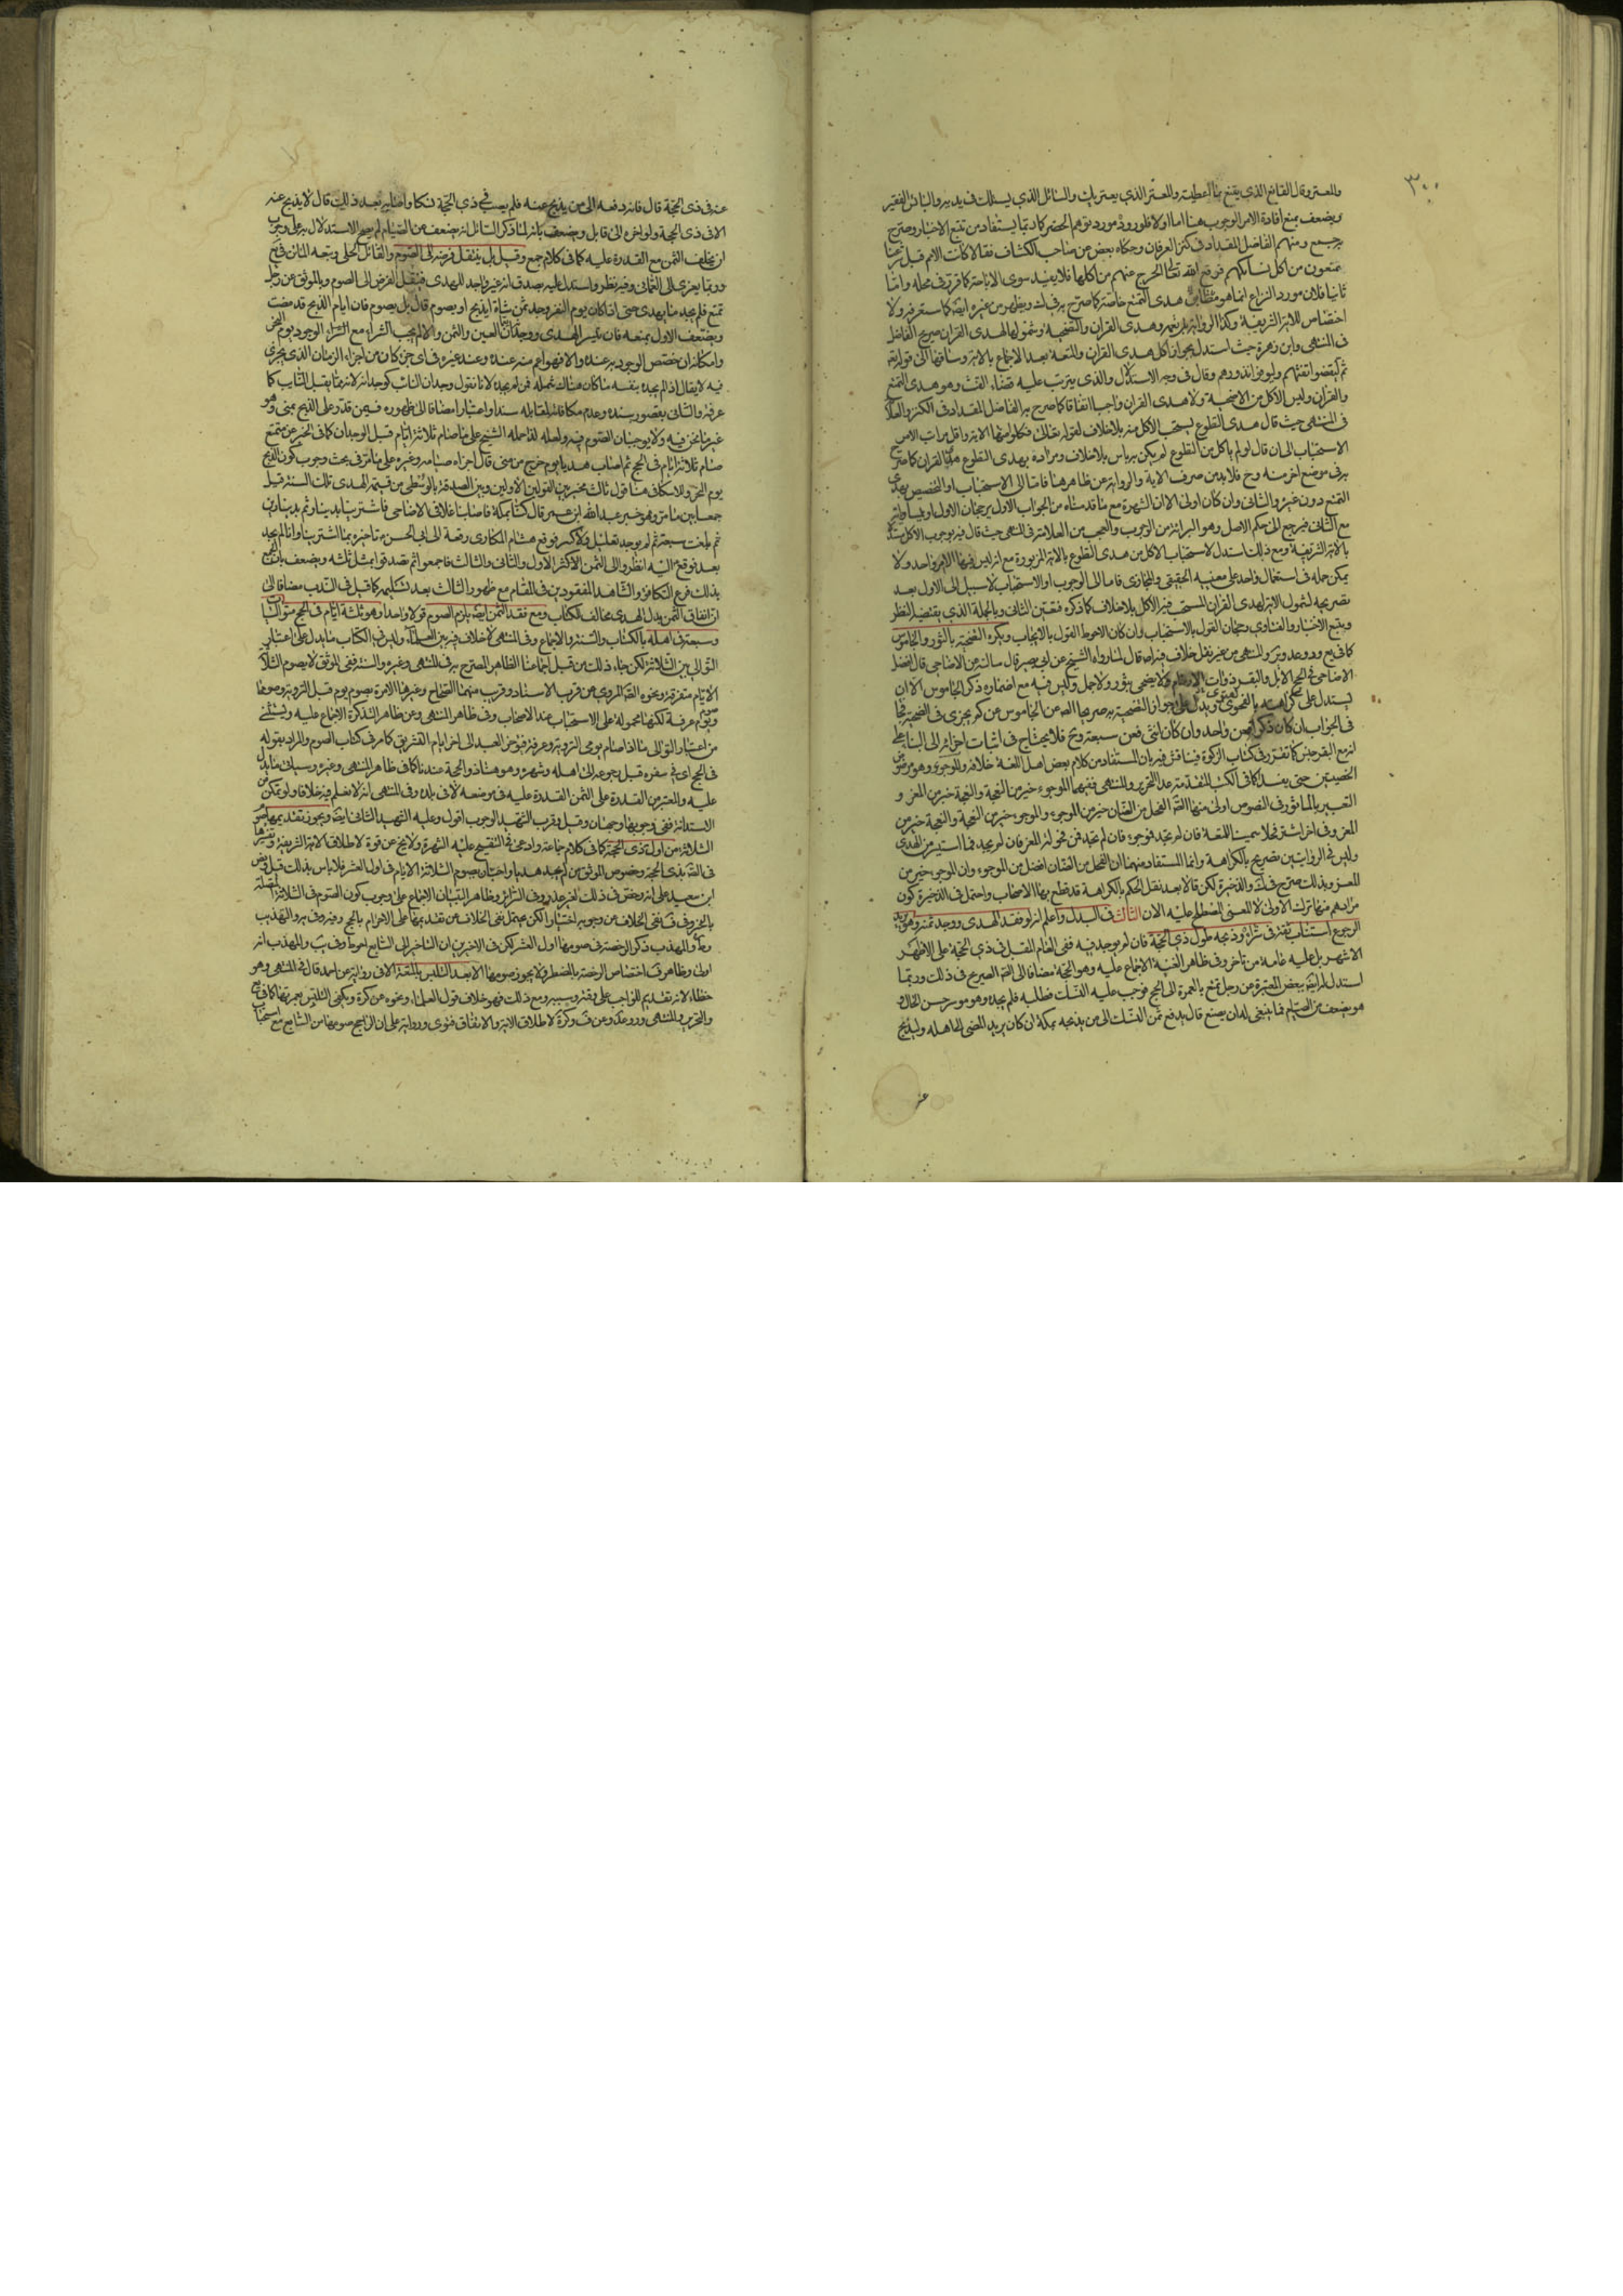 ٣٠٠
والمعتر وقال القانع الذي يقنع بما اعطيته والمعتر الذي يعتريك والسائل الذي يسئلك في يديه والبائس الفقير
ويضعف بمنع افادة الامر الوجوب هنا اما اولا فلوروده مورد توهم الحضر كما ربما يستفاد من تتبع الاخبار وصرح
به جمع ومنهم الفاضل المقداد في كنز العرفان وحكاه بعض عن صاحب الكشاف فقالا كانت الامم قبل شرعنا
يمتنعون من اكل نسائكهم فرفع الله تعالى الحرج عنهم من اكلها فلا يفيد سوى الاباحة كما قرر في محله واما
ثانيا فلان مورد النزاع انما هو هدى التمتع خاصة كما صرح به في ك ويظهر من غيره ايضا كما ستعرفه ولا
اختصاص للاية الشريفة وكذا الرواية به هدى القران والتضحية وشمولها لهدى القران صريح الفاضل
في المنتهى وابن زهرة حيث استدل بجواز اكل هدى القران والمتعة بعد الاجماع بالاية وساقها الى قوله تعالى
ثم ليقضوا تفثهم وليوفوا نذورهم وقال في وجه الاستدلال والذي يترتب عليه قضاء التفث وهو هدى التمتع
والقران وليس الاكل من الاضحية ولا هدى القران واجبا اتفاقا كما صرح به الفاضل المقداد في الكنز والعلامة
في المنتهى حيث قال هدى التطوع يستحب الاكل منه بلا خلاف لقوله تعالى فكلوا منها الاية واقل مراتب الامر
الاستحباب الى ان قال لو لم ياكل من التطوع لم يكن به باس بلا خلاف ومراده بهدى التطوع هدى القران كما صرح
به في موضع اخر منه وح فلا بد من صرف الاية والرواية عن ظاهرهما فاما الى الاستحباب او التخصيص بهدى
التمتع دون غيره والثاني وان كان اولى الا ان الشهرة مع ما قدمناه من الجواب الاول يرجحان الاول او يساويانه
مع الثاني فيرجع الى حكم الاصل وهو البرائة من الوجوب والعجب من العلامة في المنتهى حيث قال فيه بوجوب الاكل مستدلا
بالاية الشريفة ومع ذلك استدل لاستحباب الاكل من هدى التطوع بالاية المزبورة مع انه ليس فيها الا امر واحد ولا
يمكن حمله في استعمال واحد على معنييه الحقيقي والمجازي فاما الى الوجوب او الاستحباب لا سبيل الى الاول بعد
تصريحه لشمول الاية لهدى القران المستحب فيه الاكل بلا خلاف كما ذكره فتعين الثاني وبالجملة الذي يقتضيه النظر
وتتبع الاخبار والفتاوى رجحان القول بالاستحباب وان كان الاحوط القول بالايجاب ويكره التضحية بالثور والجاموس
كما في يع ود وعد و والمنتهى من غير نقل خلاف فيه اصلا قال لما رواه الشيخ عن ابي بصير قال سالته عن الاضاحي قال افضل
الاضاحي في الحج الابل والبقر ذوات الارحام ولا يضحي بثور ولا جمل وليس فيه مع اضماره ذكر الجاموس الا ان
يستدل على كراهته بالفحوى ويدل على جواز التضحية به صريحا الصحيح عن الجاموس عن كم يجزى في الضحية فجا
في الجواب ان كان ذكرا فعن واحد وان كان انثى فعن سبعة وح فلا يحتاج في اثبات اجزائه الى البناء على
انه مع البقر جنس كما تقرر في كتاب الزكوة فيناقش فيه بان المستفاد من كلام بعض اهل اللغة خلافه والموجوء وهو مرضوض
الخصيتين حتى يفسدا كما في الكتب المتقدمة عدا التحرير والمنتهى ففيهما الموجوء خير من النعجة والنعجة خير من المعز و
التعبير بالماثور في النصوص اولى منها الصحيح الفحل من الضان خير من الموجوء والموجوء خير من النعجة والنعجة خير من
المعز وفي اخر اشتر فحلا سمينا للمتعة فان لم تجد فموجوء فان لم تجد فمن فحولة المعز فان لم تجد فما استيسر من الهدى
وليس في الروايتين تصريح بالكراهة وانما المستفاد منهما ان الفحل من الضان افضل من الموجوء وان الموجوء خير من
المعز وبذلك صرح في ك والذخيرة لكن قالا بعد نقل الحكم بالكراهة قد قطع بها الاصحاب واحتمل في الذخيرة كون
مرادهم منها ترك الاولى لا المعنى المصطلح عليه الان الثالث في البدل واعلم انه لو فقد الهدى ووجد ثمنه وهو يريد
الرجوع استناب ثقة في شرائه وذبحه طول ذي الحجة فان لم يوجد فيه ففي العام المقبل في ذي الحجة على الاظهر
الاشهر بل عليه عامة من تاخر وفي ظاهر الغنية الاجماع عليه وهو الحجة مضافا الى الصحيح الصريح في ذلك وربما
استدل له ايضا ببعض المعتبرة عن رجل تمتع بالعمرة الى الحج فوجب عليه النسك فطلبه فلم يجده وهو موسر حسن الحال و
هو يضعف عن الصيام فما ينبغي له ان يصنع قال يدفع ثمن النسك الى من يذبحه بمكة ان كان يريد المضي الى اهله وليذبح
عنه في ذي الحجة قال فانه دفعه الى من يذبح عنه فلم يصب في ذي الحجة نسكا واصابه بعد ذلك قال لا يذبح عنه
الا في ذي الحجة ولو اخره الى قابل ويضعف بانه لما ذكر السائل انه يضعف من الصيام لم يصح الاستدلال به على وجوب
ان يخلف الثمن مع القدرة عليه كما في كلام جمع وقيل بل ينتقل فرضه الى الصوم والقائل الحلي وتبعه الماتن في يع
وربما يعزى الى العماني وفيه نظر واستدل عليه بصدق انه غير واجد الهدى فينتقل الفرض الى الصوم وبالموثق عن رجل
تمتع فلم يجد ما يهدى حتى اذا كان يوم النفر وجد ثمن شاة ايذبح او يصوم قال بل يصوم فان ايام الذبح قد مضت
ويضعف الاول بمنعه فان تيسر الهدى ووجدانه يعم العين والثمن والا لم يجب الشراء مع الوجود يوم النحر
وامكانه ان يختص الوجود به عنده والا فهو اعم منه عنده وعند غيره في اي جزء كان من اجزاء الزمان الذي يجزى
فيه لا يقال اذا لم يجده بنفسه ما كان هناك شمله فمن لم يجد لانا نقول وجدان النائب كوجدانه لانه مما يقبل النيابة كما
عرفته والثاني بقصور سنده وعدم مكافاته لمقابله سندا واعتبارا مضافا الى ظهوره فيمن قدر على الذبح بمنى وهو
غير ما نحن فيه ولا يوجبان الصوم فيه ولعله لذا حمله الشيخ على من صام ثلاثة ايام قبل الوجدان كما في الخبر عن متمتع
صام ثلاثة ايام في الحج ثم اصاب هديا يوم خرج من منى قال اجزاه صيامه وغيره على ما مر في بحث وجوب كون الذبح
يوم النحر وللاسكافي هنا قول ثالث مخير بين القولين الاولين وبين الصدقة بالوسطى من قيمة الهدى تلك السنة قيل
جمعا بين ما مر وهو خبر عبد الله بن عمر قال كنا بمكة فاصابنا غلاء في الاضاحي فاشترينا بدينار ثم بدينارين
ثم بلغت سبعة ثم لم يوجد بقليل ولا كثير فوقع هشام المكاري رقعة الى ابي الحسن ع فاخبره بما اشترينا وانا لم نجد
بعد فوقع اليه انظروا الى الثمن الاول والثاني والثالث فاجمعوا ثم تصدقوا بمثل ثلثه ويضعف بان الجمع
بذلك فرع التكافؤ والشاهد المفقودين في المقام مع ظهور الثالث بعد تسليمه كما قيل في الندب مضافا الى
ان اتفاق الثمن بدل الهدى مخالف للكتاب ومع فقد الثمن ايضا يلزم الصوم قولا واحدا وهو ثلثة ايام في الحج متواليات
وسبعة في اهله بالكتاب والسنة والاجماع وفي المنتهى لا خلاف فيه بين العلماء وليس في الكتاب ما يدل على اعتبار
التوالي بين الثلاثة لكن جاء ذلك من قبل اجماعنا الظاهر المصرح به في المنتهى وغيره والسنة ففي الموثق لا يصوم الثلاثة
الايام متفرقة ونحوه الصحيح المروي عن قرب الاسناد وقريب منهما الصحاح وغيرها الامرة بصوم يوم قبل التروية وصومها
ويوم عرفة لكنها محمولة على الاستحباب عند الاصحاب وفي ظاهر المنتهى وعن ظاهر التذكرة الاجماع عليه ويستثنى
من اعتبار التوالي ما اذا صام يومي التروية وعرفة فيؤخر العيد الى اخر ايام التشريق كما مر في كتاب الصوم والمراد بقوله
في الحج اي في سفره قبل رجوعه الى اهله وشهره وهو هنا ذو الحجة عندنا كما في ظاهر المنتهى وغيره وسياتي ما يدل
عليه والمعتبر من القدرة على الثمن القدرة عليه في موضعه لا في بلده وفي المنتهى انه لا نعلم فيه خلافا ولو تمكن من
الاستدانة ففي وجوبها وجهان وقيل وقرب الشهيد الوجوب اقول وعليه الشهيد الثاني ايضا ويجوز تقديمها صوم
الثلاثة من اول ذي الحجة كما في كلام جماعة وادعى في التنقيح عليه الشهرة ولا يخ عن قوة لاطلاق الاية الشريفة وتفسيرها
في الصحيح بذي الحجة وخصوص الموثق من لم يجد هديا واحب ان يصوم الثلاثة الايام في اول العشر فلا باس بذلك قيل وعن
ابن سعيد على انه رخص في ذلك لغير عذر وفي السرائر وظاهر التبيان الاجماع على وجوب كون الصوم في الثلاثة المتصلة
بالنحر وفي ف نفي الخلاف عن وجوبه اختيارا لكن يحتمل نفي الخلاف عن تقديمها على الاحرام بالحج وفيه وفي يه والمهذب
وط والمهذب ذكر الرخصة في صومها اول العشر لكن في الاخيرين ان التاخير الى السابع احوط وفي يب والمهذب انه
اولى وظاهر ف اختصاص الرخصة بالمضطر ولا يجوز صومها الا بعد التلبس بالمتعة الا في رواية عن احمد قال في المنتهى وهو
خطاء لانه تقديم للواجب على وقته وسببه ومع ذلك فهو خلاف قول العلماء ونحوه عن كره ويكفي التلبس بعمرتها كما في يع
والتحرير والمنتهى ود وعد وعن ف وكره لاطلاق الاية والاتفاق فتوى ورواية على ان الراجح صومها من السابع مع استحباب